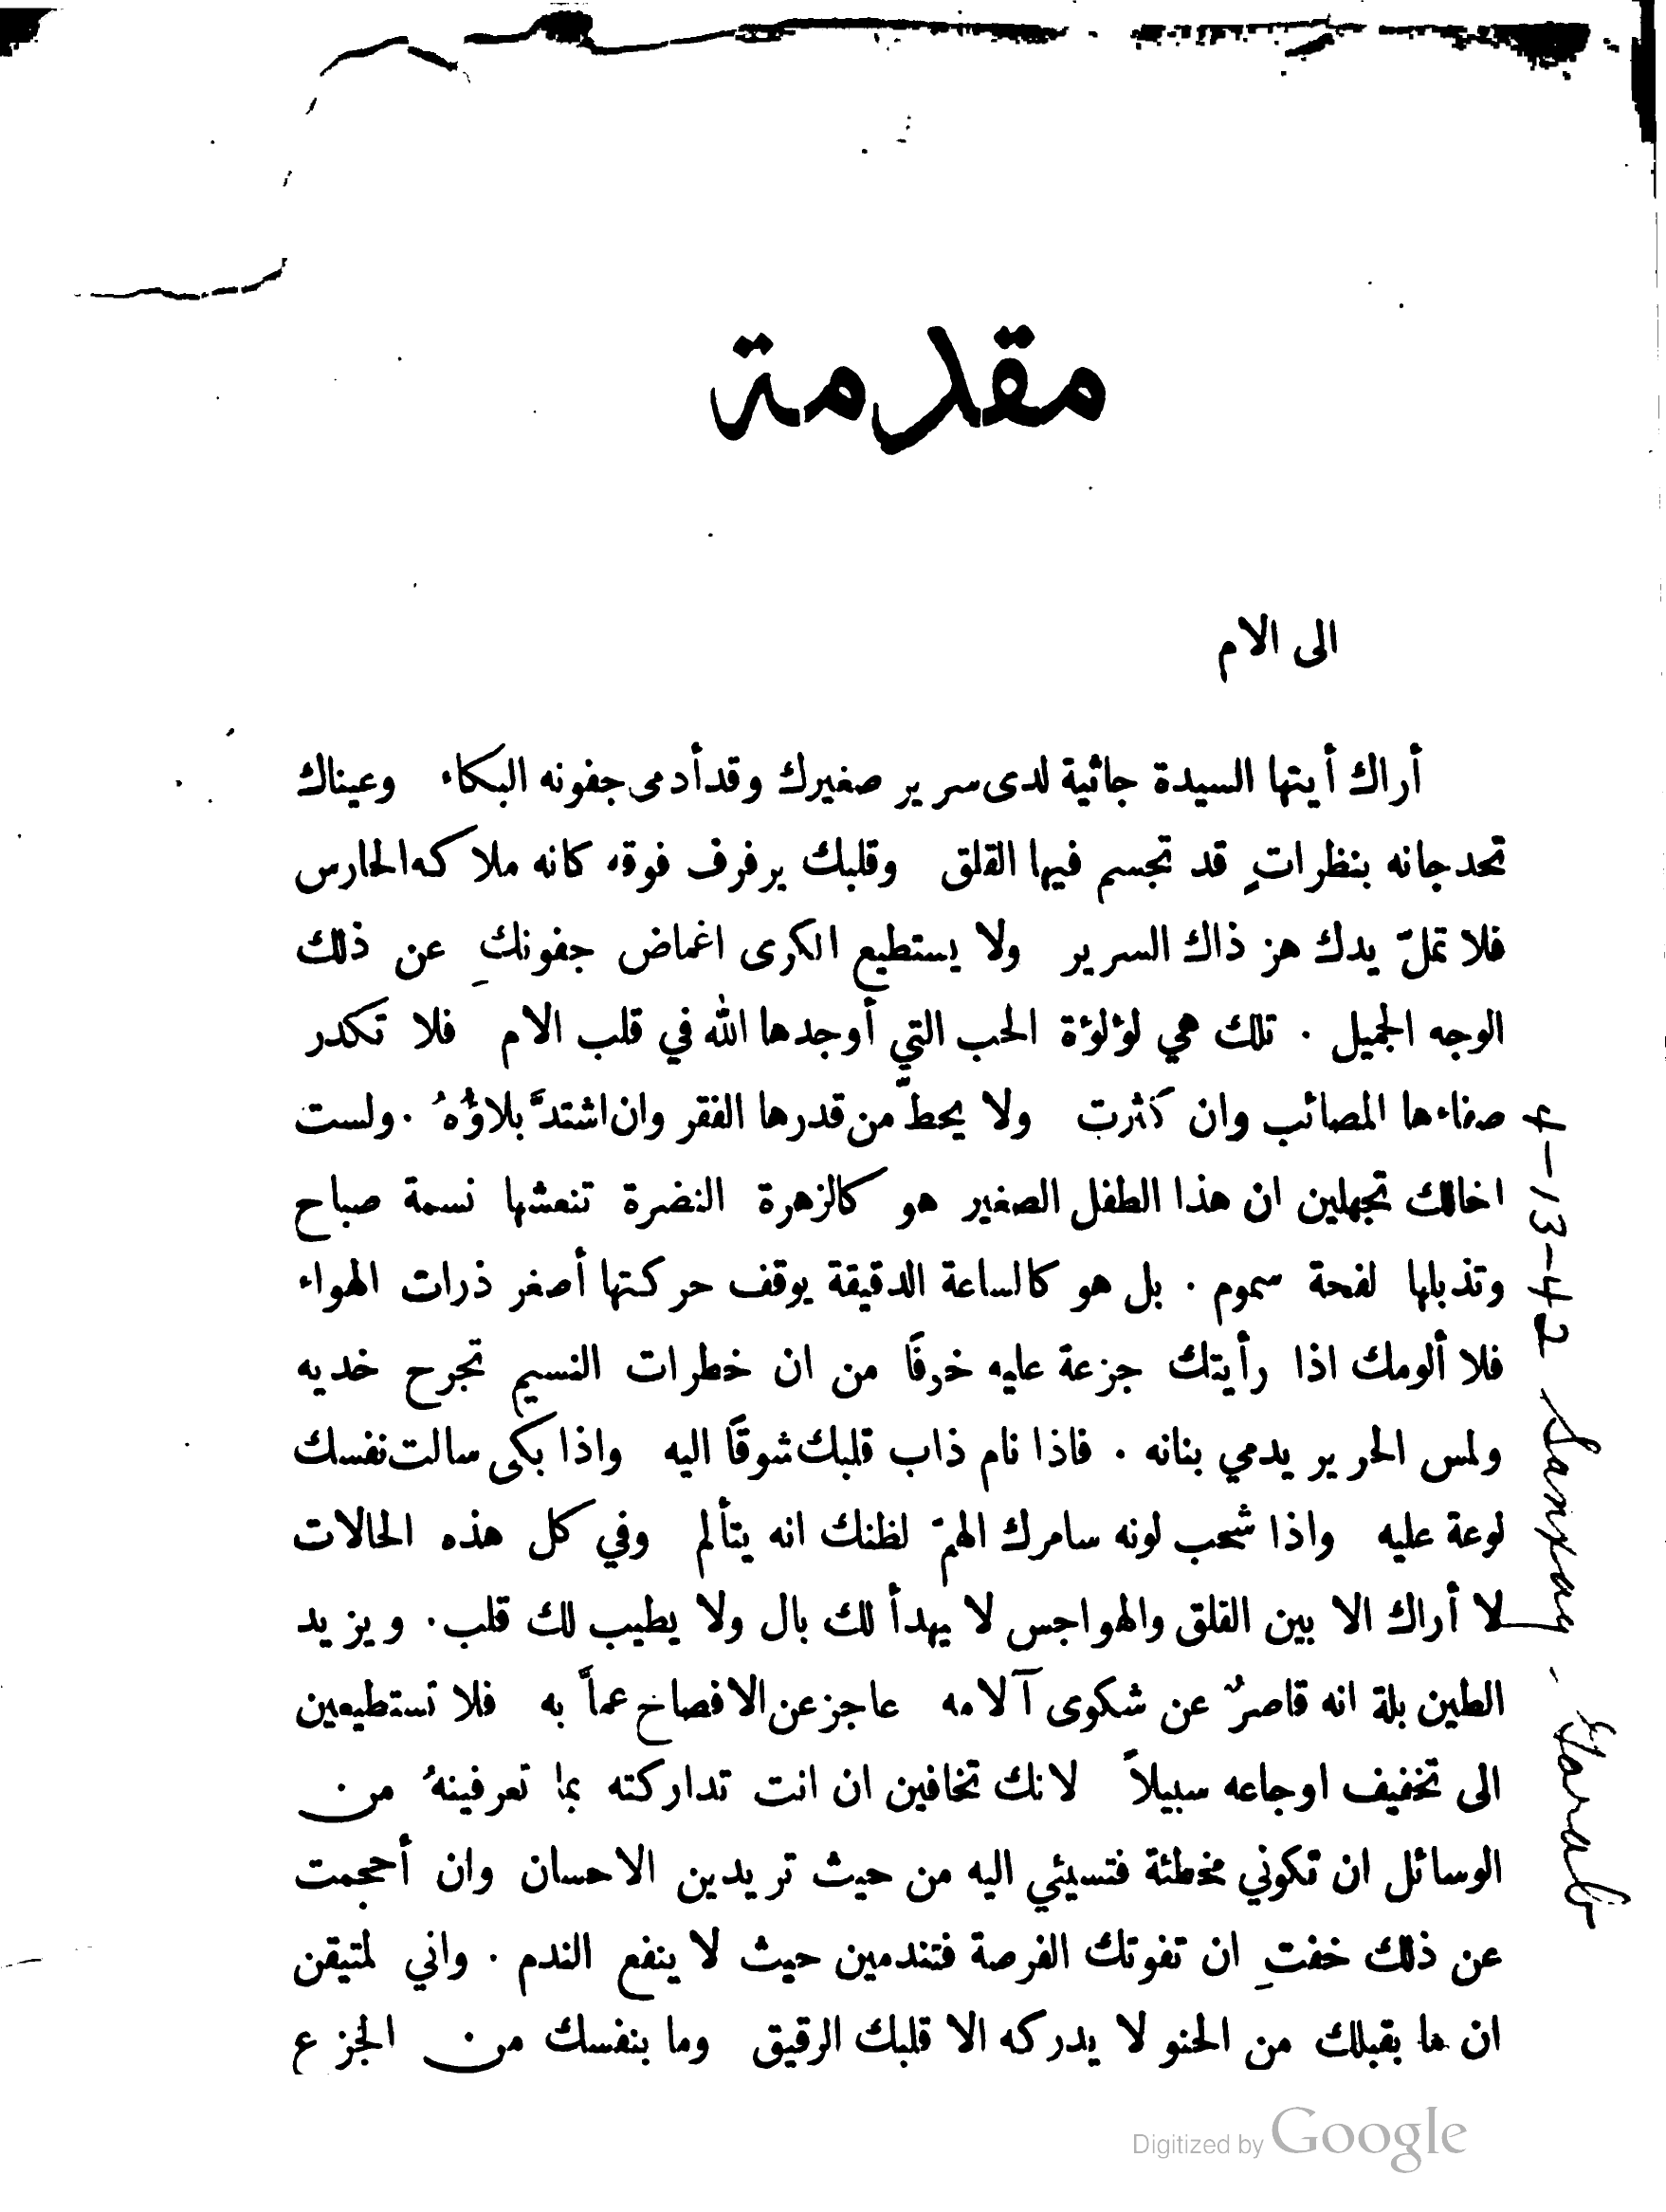 مقدمة
الى الام
أراك أيتها السيدة جاثية لدى سرير صغيرك وقد أدمى جفونه البكاء وعيناك
تحدجانه بنظراتٍ قد تجسم فيها القلق وقلبك يرفرف فوقه كانه ملاكه الحارس
فلا تملّ يدك هز ذاك السرير ولا يستطيع الكرى اغماض جفونكِ عن ذلك
الوجه الجميل . تلك هي لؤلؤة الحب التي أوجدها الله في قلب الام فلا تكدر
صفاءها المصائب وان كثرت ولا يحطّ من قدرها الفقر وان اشتدَّ بلاؤُهُ . ولست
اخالك تجهلين ان هذا الطفل الصغير هو كالزهرة النضرة تنعشها نسمة صباح
وتذبلها لفحة سموم . بل هو كالساعة الدقيقة يوقف حركتها أصغر ذرات الهواء
فلا ألومك اذا رأيتك جزعة عليه خوفًا من ان خطرات النسيم تجرح خديه
ولمس الحرير يدمي بنانه . فاذا نام ذاب قلبك شوقًا اليه واذا بكى سالت نفسك
لوعة عليه واذا شحب لونه سامرك الهمّ لظنك انه يتألم وفي كل هذه الحالات
لا أراك الا بين القلق والهواجس لا يهدأ لك بال ولا يطيب لك قلب . ويزيد
الطين بلة انه قاصرٌ عن شكوى آلامه عاجز عن الافصاح عماَّ به فلا تستطيعين
الى تخفيف اوجاعه سبيلاً لانك تخافين ان انت تداركته بما تعرفينهُ من
الوسائل ان تكوني مخطئة فتسيئي اليه من حيث تريدين الاحسان وان أحجمت
عن ذلك خفتِ ان تفوتك الفرصة فتندمين حيث لا ينفع الندم . واني لمتيقن
ان ما بقبلك من الحنو لا يدركه الا قلبك الرقيق وما بنفسك من الجزع
4-13-42
Digitized by Google